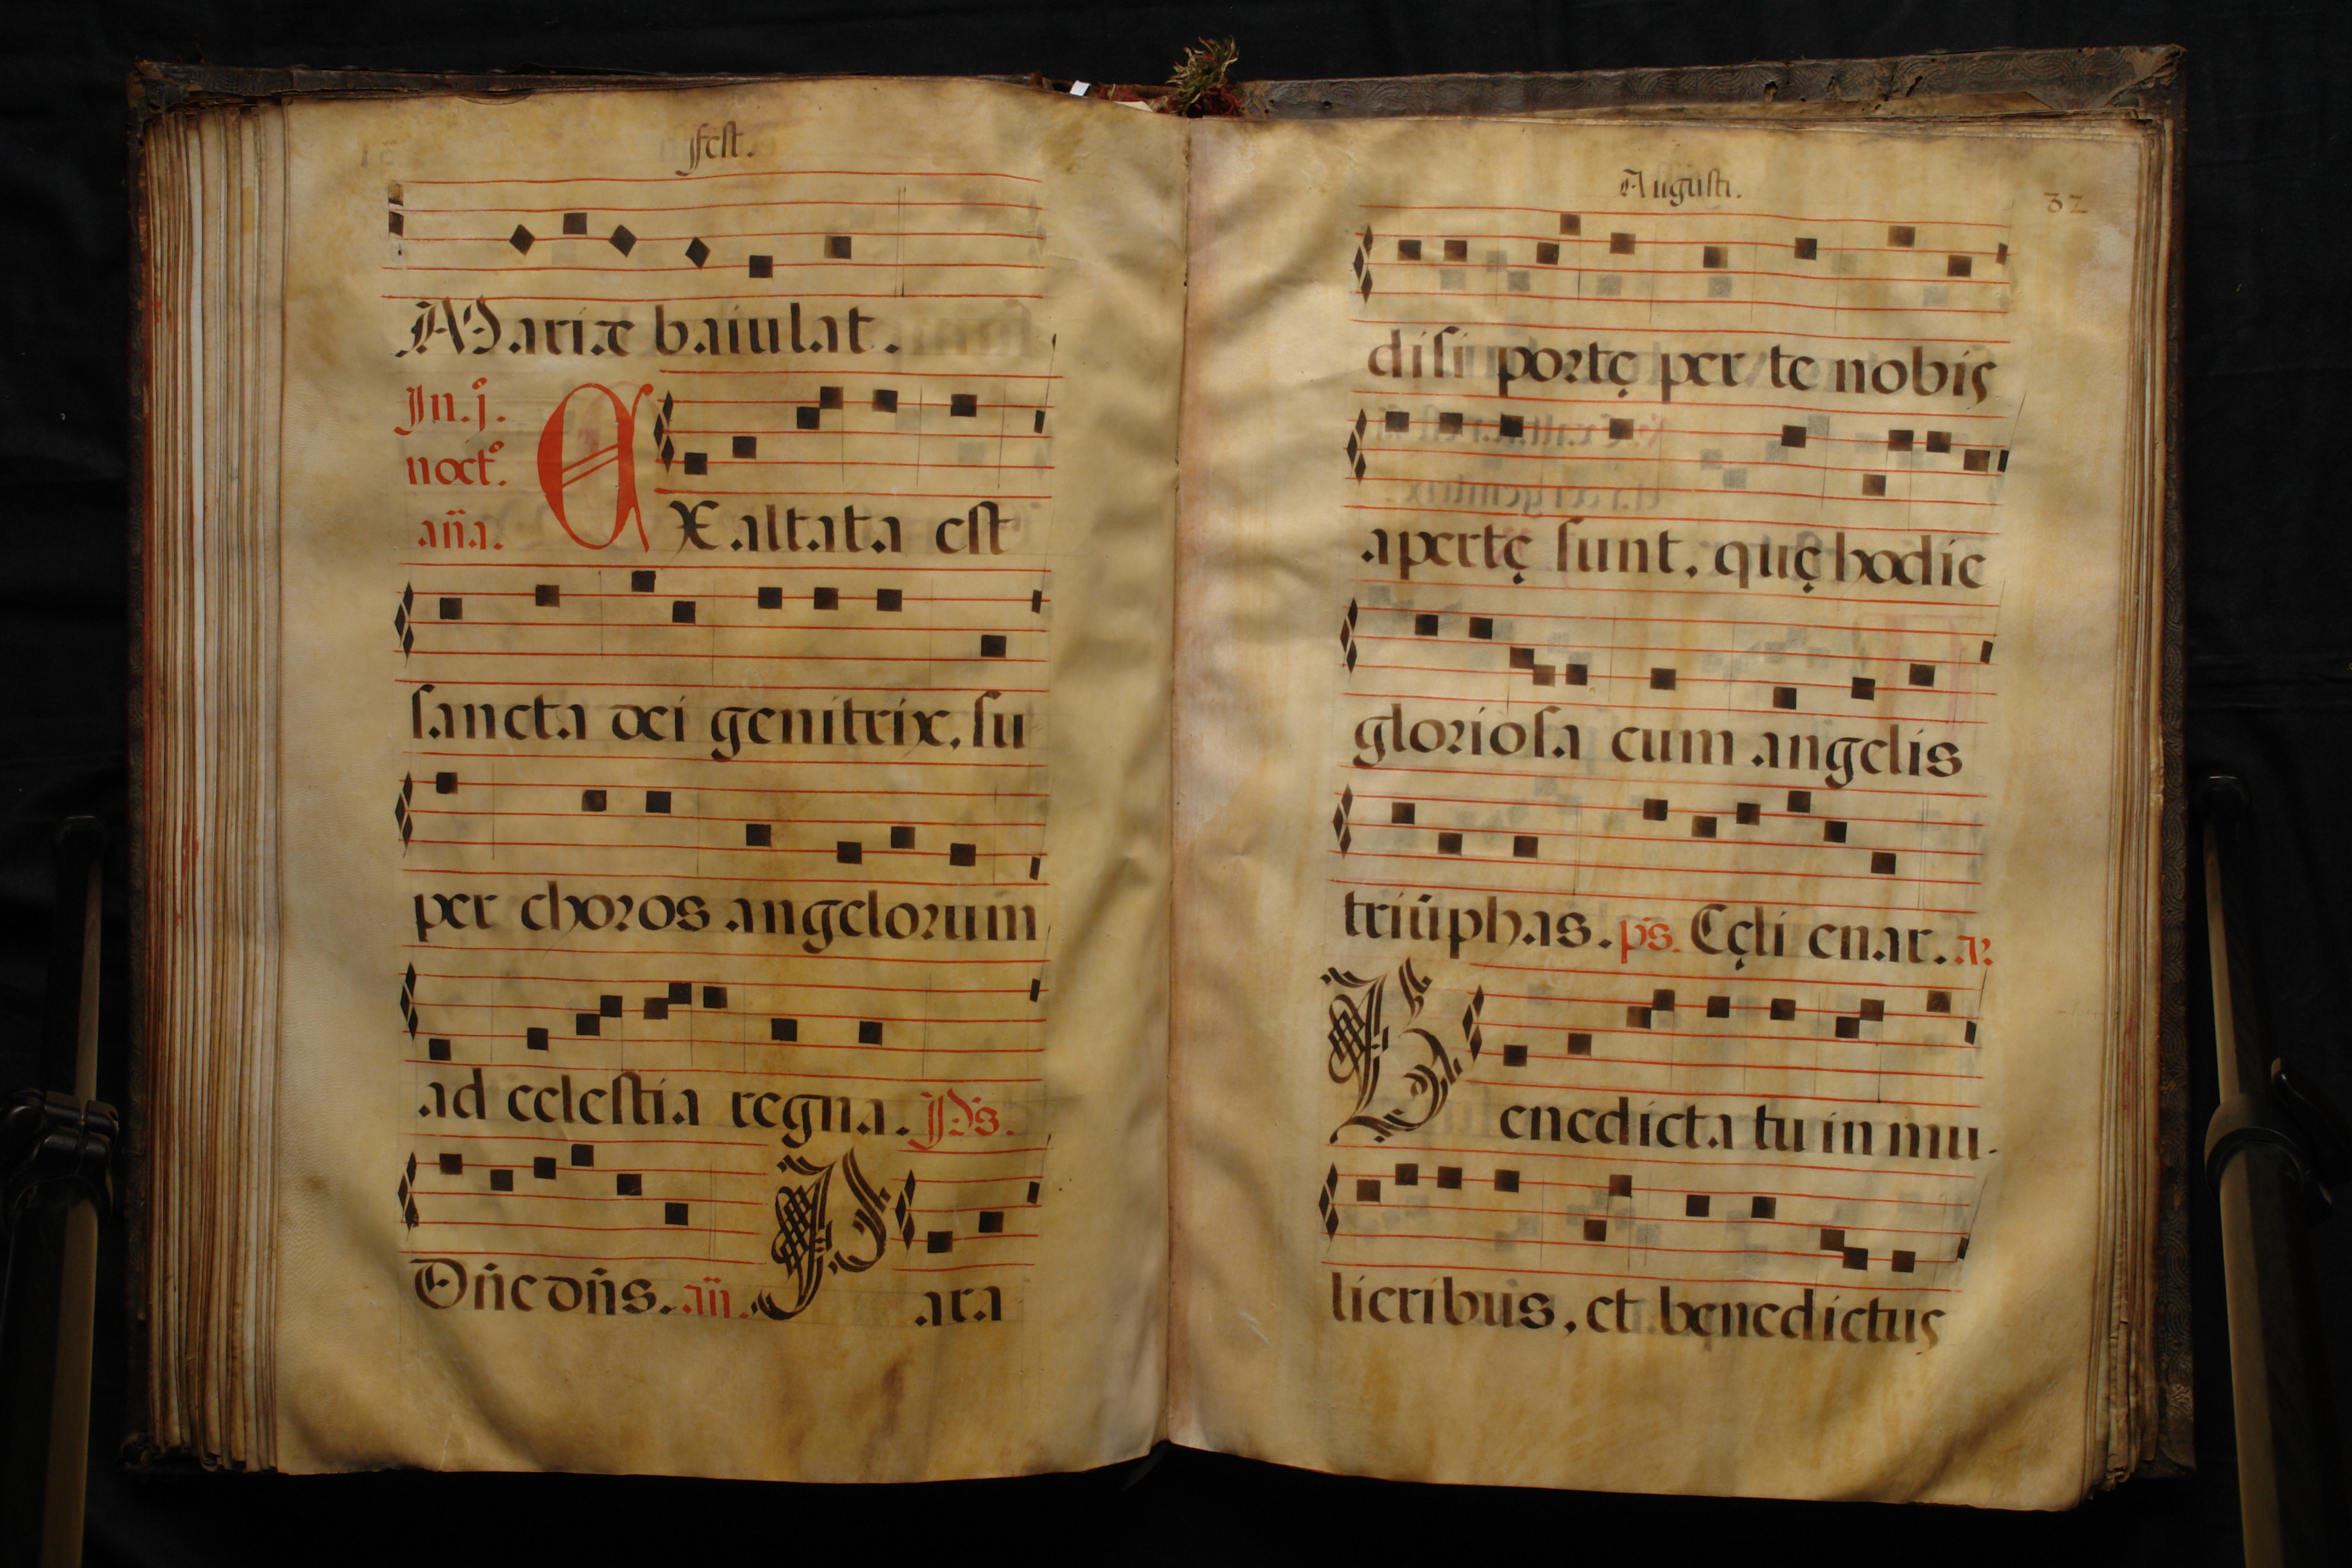 fest.
Mariæ baiulat.
In.j.º
noct.º
añа.
EXaltata est
sancta dei genitrix, su
per choros angelorum
ad celestia regna. Ps.
Dñe dñs. añ. Para
Augusti.
32
disi portę per te nobis
apertę sunt, quę hodie
gloriosa cum angelis
triūphas. ps. Cęli enar. a.
Benedicta tu in mu-
lieribus, et benedictus